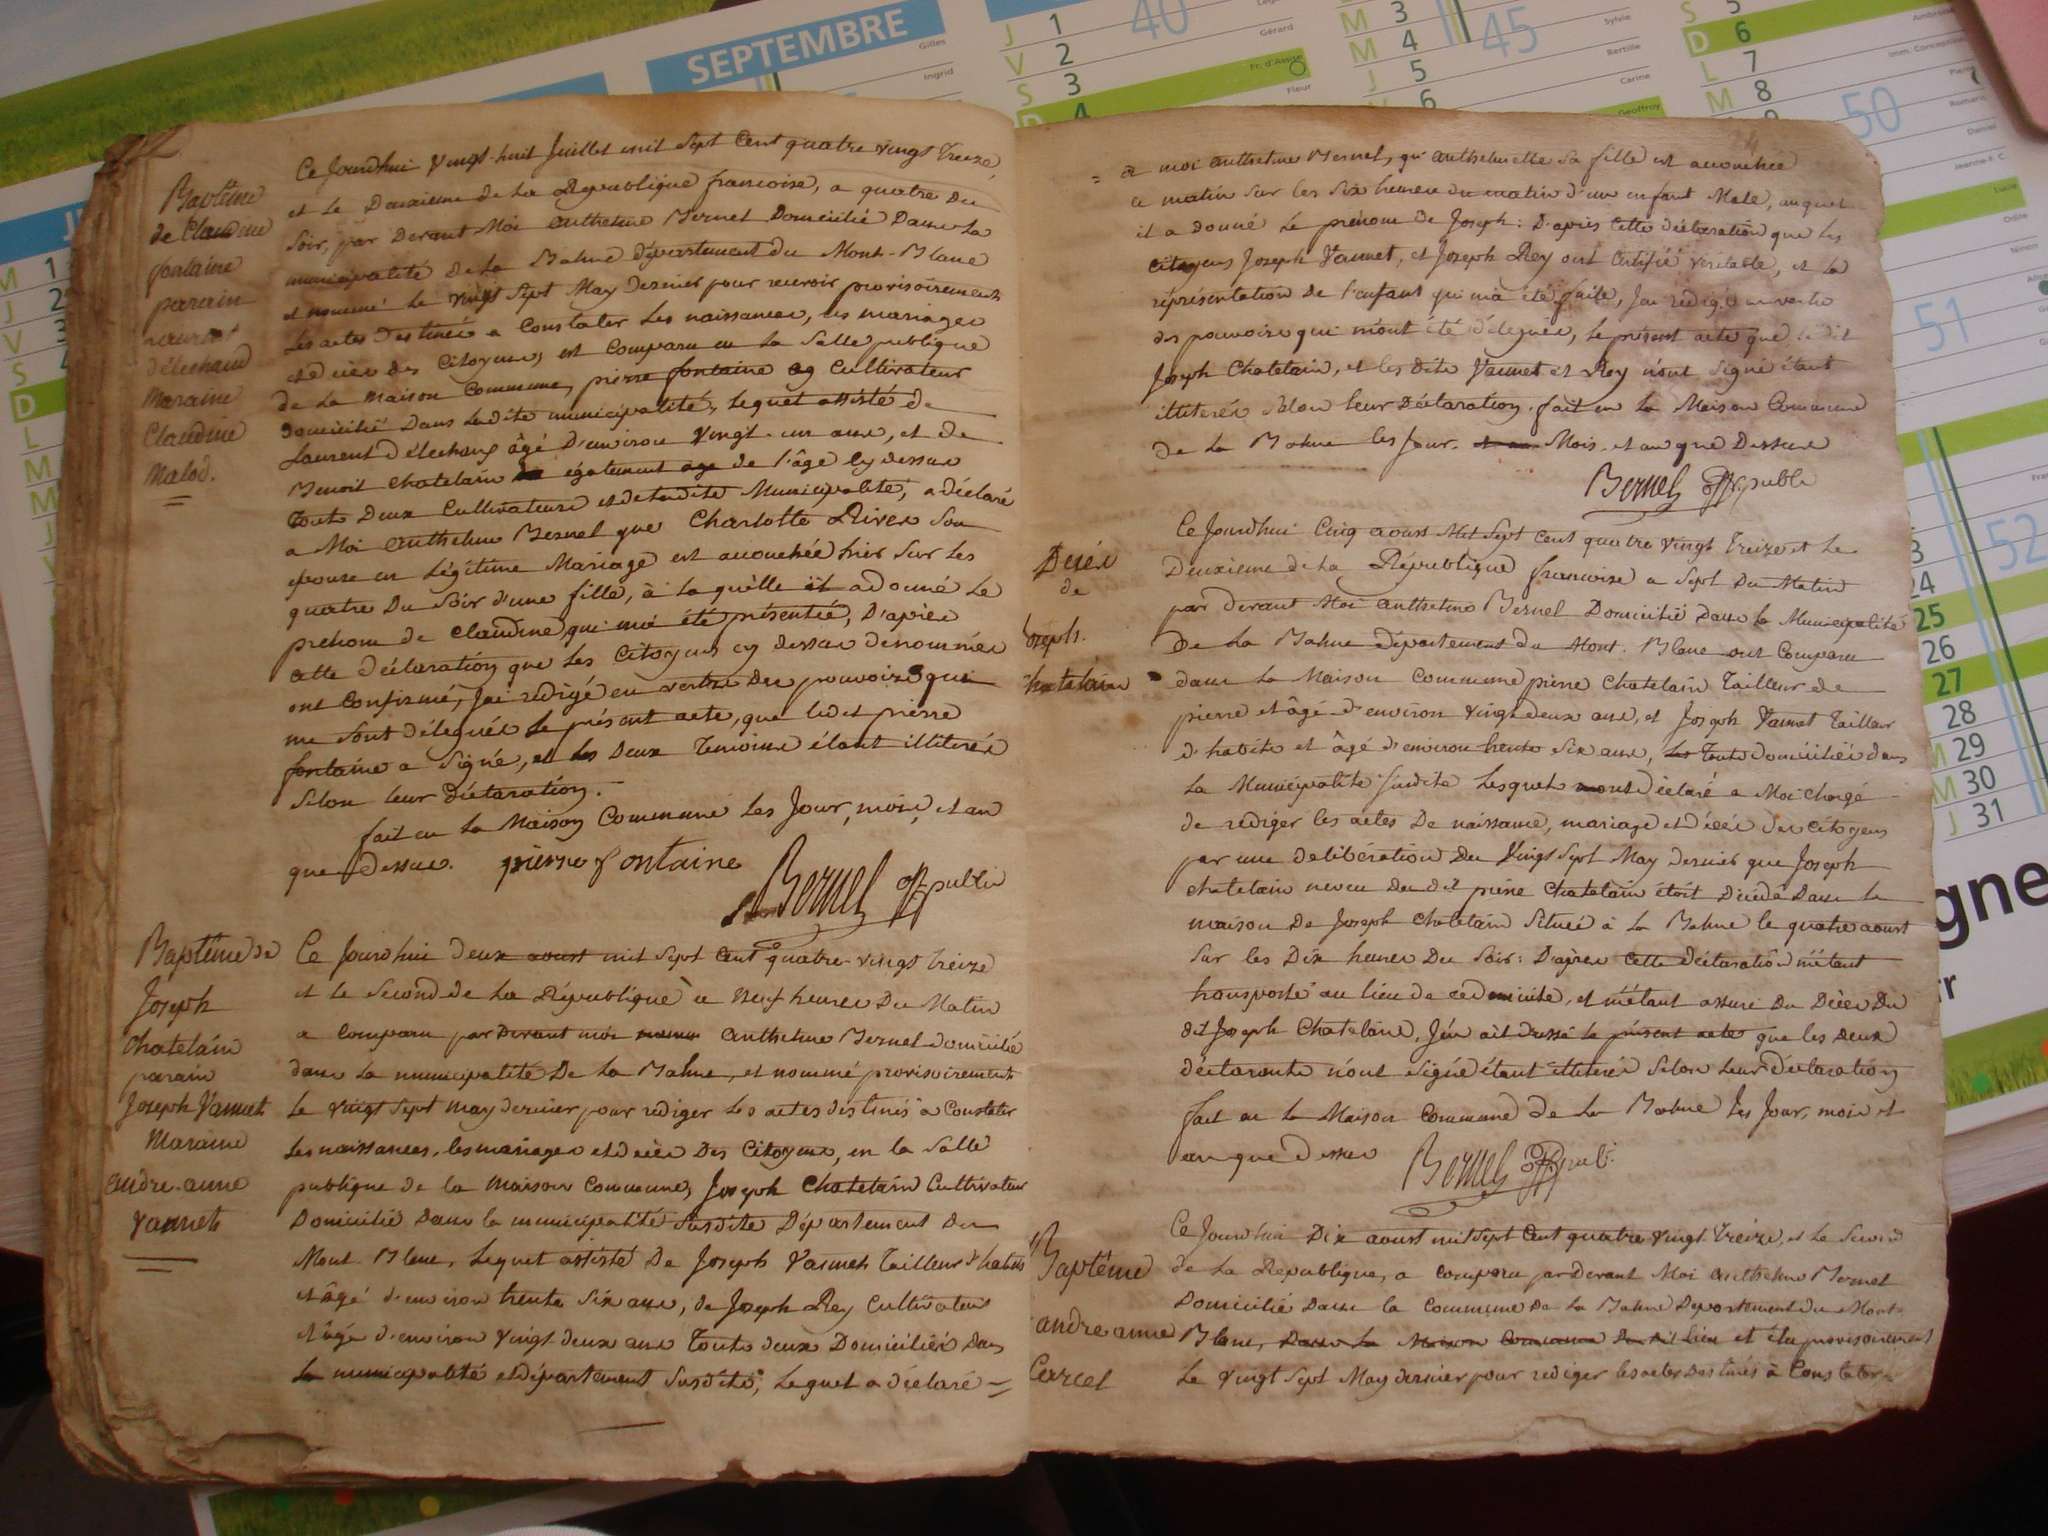 SEPTEMBRE
Baptême
de Claudine
fontaine
parain
délechaud
Maraine
Claudine
Ce Jourdhui Vingt-huit Juillet mil sept Cent quatre vingt treize
et le Deuxieme de La République francoise, a quatre du
Soir, par Devant Moi Anthelme Bernel Domicilié Dans La
municipalité De La Balme département du Mont-Blanc
et nommé Le vingt sept May Dernier pour recevoir provisoirement
Les actes destinés a Constater Les naissances, les mariages
et décès des Citoyens, est Comparu en La Salle publique
de La Maison Commune, pierre fontaine Cultivateur
domicilié Dans Ladite municipalité, Lequel assisté de
Laurent délechaux âgé D'environ Vingt-un ans, et de
Benoit Chatelain également de l'âge cy dessus
Touts Deux Cultivateurs et de ladite Municipalité, a déclaré
a Moi Anthelme Bernel que Charlotte Rives son
épouse en Légitime Mariage est accouchée hier sur les
quatre Du Soir d'une fille, à laquelle il a donné Le
prenom de Claudine, qui m'a été présentée, D'après
cette déclaration que Les Citoyens cy dessus dénommés
ont Confirmé, J'ai rédigé en vertue Des pouvoirs qui
me sont délegués Le présent acte, que ledit pierre
fontaine a Signé, et les Deux Temoins étant illiterés
Selon leur déclaration.
fait en la Maison Commune Les Jour, mois, et an
que dessus. pierre fontaine
Bernel off. public
Baptême de
Joseph
Chatelain
parain
Joseph Vannet
Maraine
andre-anne
Vannet
Ce Jourdhui deux aoust mil sept Cent quatre-vingt treize
et le Second de La République à Neuf heures Du Matin
a Comparu par Devant moi Anthelme Bernel domicilié
dans La municipalité De La Balme, et nommé provisoirement
Le vingt sept may dernier pour rédiger Les actes destinés a Constater
Les naissances, les mariages et décès Des Citoyens, en la Salle
publique de la Maison Commune, Joseph Chatelain Cultivateur
Domicilié Dans la municipalité Susdite Département Du
Mont-Blanc, Lequel assisté De Joseph Vannet Tailleur d'habits
et âgé d'environ trente six ans, de Joseph Rey Cultivateur
et âgé d'environ vingt deux ans Touts deux Domiciliés dans
La municipalité et département Susdité, Lequel a déclaré =
= a moi Anthelme Bernel, qu'anthelmette sa fille est accouchée
ce matin sur les six heures du matin d'un enfant Male, auquel
il a donné Le prénom De Joseph : D'après Cette déclaration que les
Citoyens Joseph Vannet, et Joseph Rey ont Certifié véritable, et La
représentation De l'enfant qui m'a été faite, J'ai rédigé en vertue
des pouvoirs qui m'ont été délegués, le présent acte que le dit
Joseph Chatelain, et les dits Vannet et Rey n'ont signé étant
illiterés selon leur Déclaration. fait en La Maison Commune
de La Balme les Jour, Mois, et an que Dessus
Bernel off. public
Décès
de
Joseph
Chatelain
Ce Jourdhui Cinq aoust Mil Sept Cent quatre vingt treize et Le
Deuxieme de La République francoise a Sept Du Matin
par devant Moi Anthelme Bernel Domicilié dans la Municipalité
De La Balme département du Mont-Blanc ont Comparu
dans La Maison Commune pierre Chatelain Tailleur de
pierre et âgé d'environ vingt deux ans, et Joseph Vannet Tailleur
d'habits et âgé d'environ trente Six ans, Touts domiciliés dans
La Municipalité susdite Lesquels m'ont déclaré a Moi Chargé
de rédiger les actes De naissance, mariage et décès des Citoyens
par une délibération Du Vingt Sept May dernier que Joseph
Chatelain neveu Du dit pierre Chatelain étoit Décédé Dans la
maison De Joseph Chatelain Située à La Balme le quatre aoust
Sur les Dix heures Du Soir : D'après Cette déclaration m'étant
transporté au lieu de ce domicile, et m'étant assuré Du Décès Du
dit Joseph Chatelain, J'en ait dressé le présent acte que les Deux
déclarants n'ont Signé étant illiterés Selon Leur déclaration
fait en la Maison Commune de La Balme les Jour, mois et
an que dessus Bernel off. publ.
Baptême
andre anne
Carcel
Ce Jourdhui Dix aoust mil sept Cent quatre vingt treize, et Le Second
de La République, a Comparu par Devant Moi Anthelme Bernel
Domicilié Dans la Commune De La Balme Département du Mont-
Blanc, Dans La Maison Commune Du dit lieu et élu provisoirement
Le Vingt Sept May dernier pour rediger les actes destinés à Constater